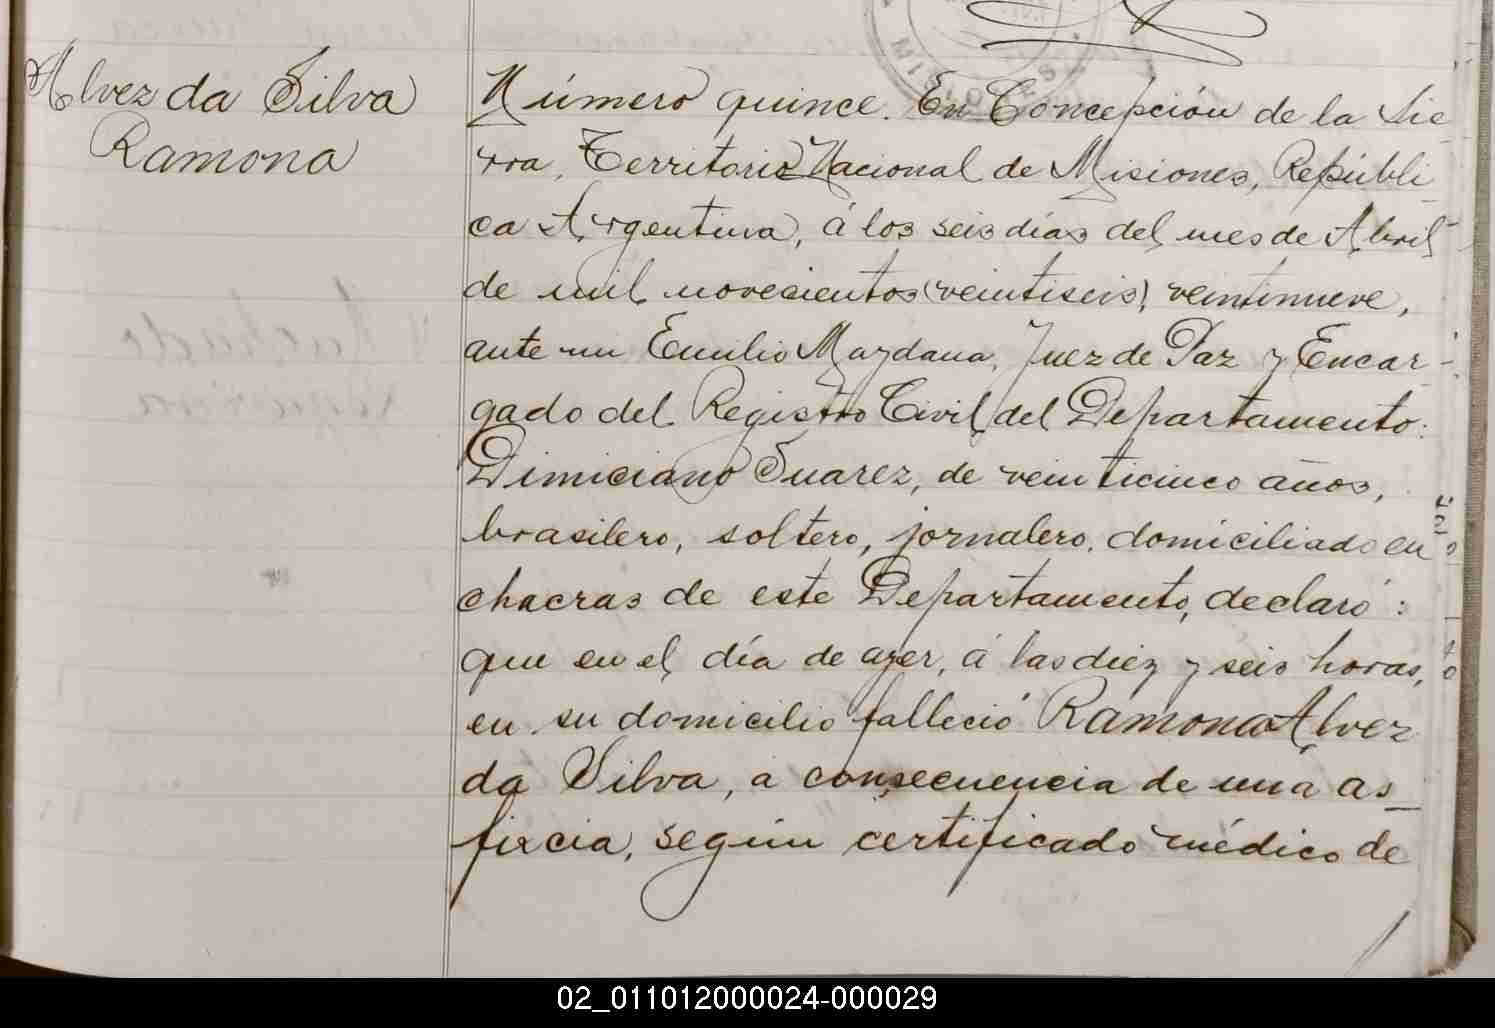 Alvez da Silva
Ramona
MISIONES
Número quince. En Concepción de la Sie
rra, Territorio Nacional de Misiones, Repúbli
ca Argentina, á los seis días del mes de Abril
de mil novecientos (veintiseis) veintinueve,
ante mi Emilio Maydana, Juez de Paz y Encar-
gado del Registro Civil del Departamento:
Dimiciano Suarez, de veinticinco años,
brasilero, soltero, jornalero, domiciliado en
chacras de este Departamento, declaró:
que en el día de ayer, á las diez y seis horas,
en su domicilio falleció Ramona Alvez
da Silva, a consecuencia de una as_
fixcia, según certificado médico de
02_011012000024-000029